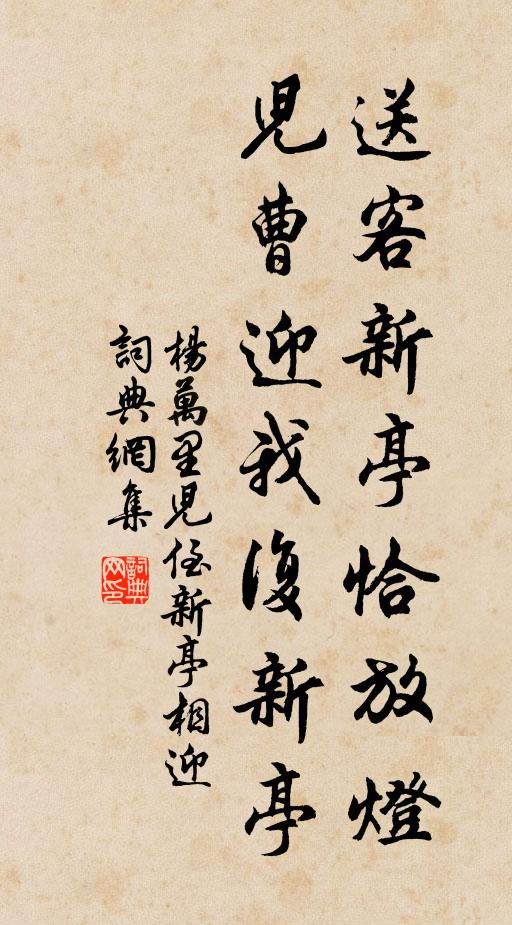 送客新亭恰放燈
兒曹迎我復新亭
楊萬里兒侄新亭相迎
詞典網集
詞典网印